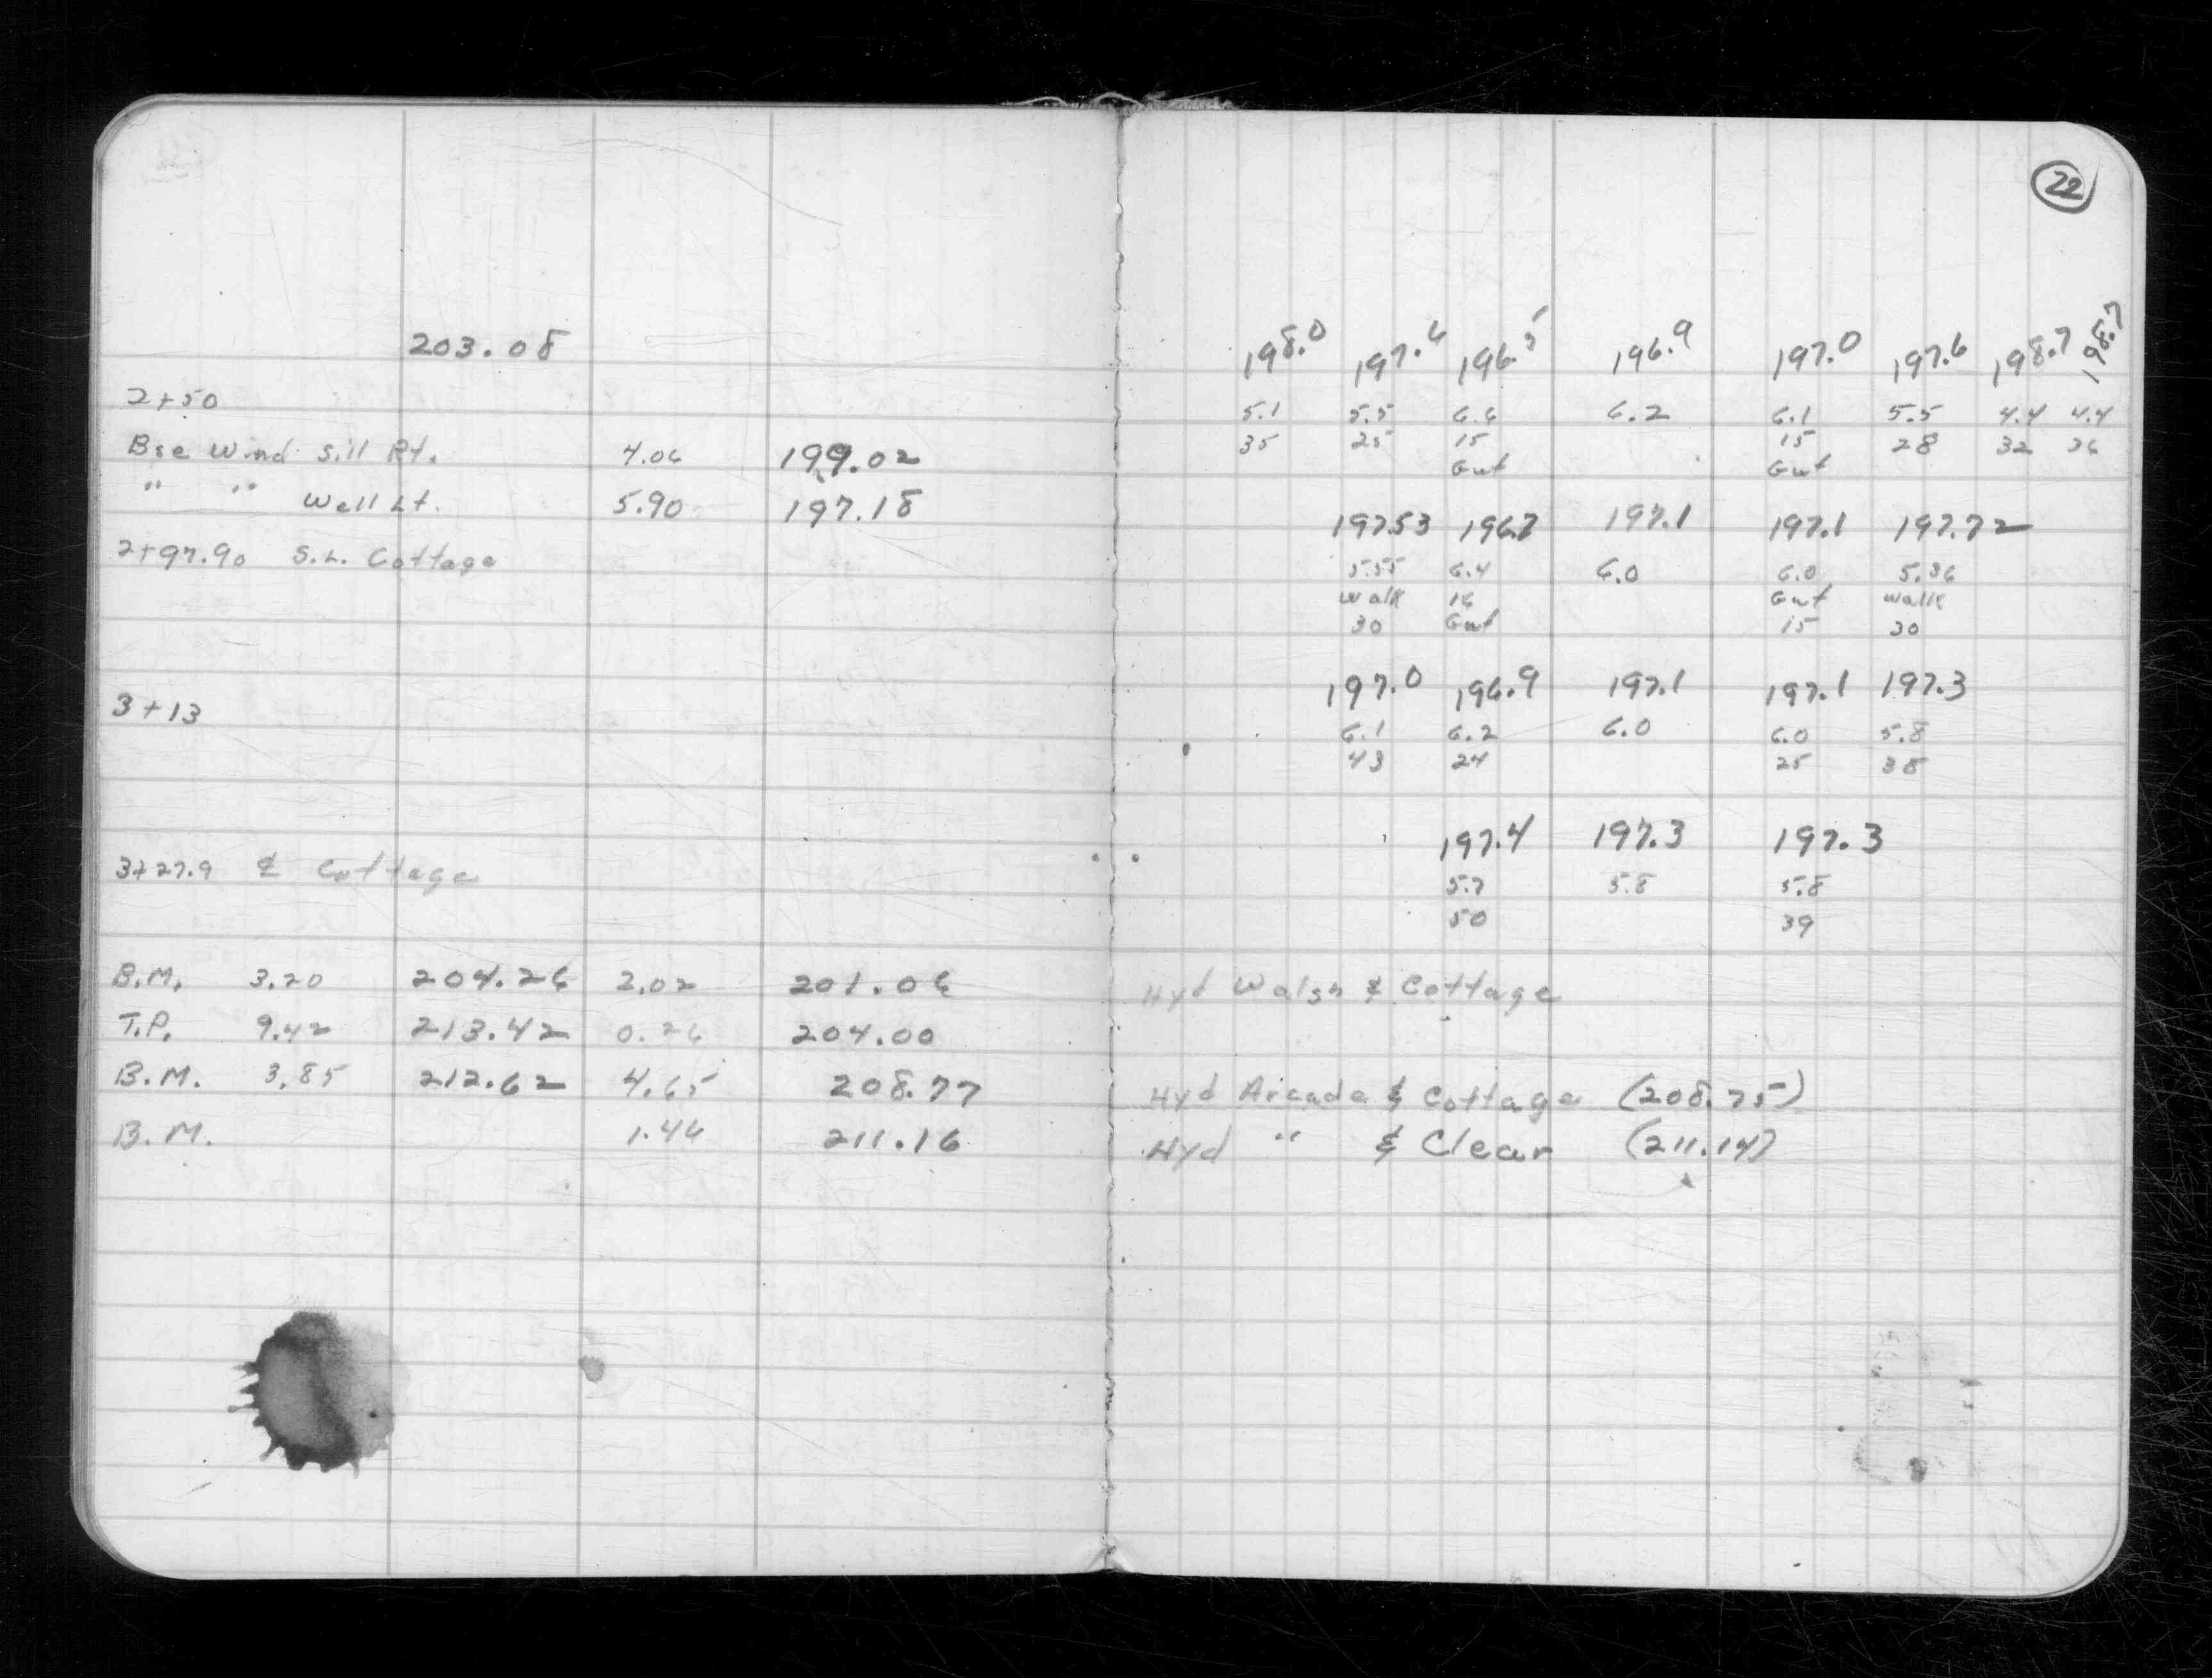 22
203.08
198.0 197.6 196.5 196.9 197.0 197.6 198.7 198.7
2+50
5.1 5.5 6.6 6.2 6.1 5.5 4.4 4.4
35 25 15 15 28 32 36
Gut Gut
Bse Wind Sill Rt. 4.06 199.02
" " Well Lt. 5.90 197.18
197.53 196.7 197.1 197.1 197.72
2+97.90 S.L. Cottage
5.55 6.4 6.0 6.0 5.36
Walk 16 Gut Walk
30 Gut 15 30
197.0 196.9 197.1 197.1 197.3
3+13
6.1 6.2 6.0 6.0 5.8
43 24 25 38
197.4 197.3 197.3
3+27.9 ₵ Cottage
5.7 5.8 5.8
50 39
B.M. 3.20 204.26 2.02 201.06 Hyd Walsh & Cottage
T.P. 9.42 213.42 0.26 204.00
B.M. 3.85 212.62 4.65 208.77 Hyd Arcade & Cottage (208.75)
B.M. 1.46 211.16 Hyd " & Clear (211.14)